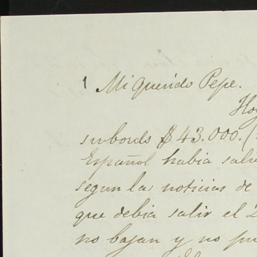 1 Mi querido Pepe.
Hoy
su bordo $43.000.(
Español habia sali
segun las noticias de
que debia salir el 2
no bajan y no pu